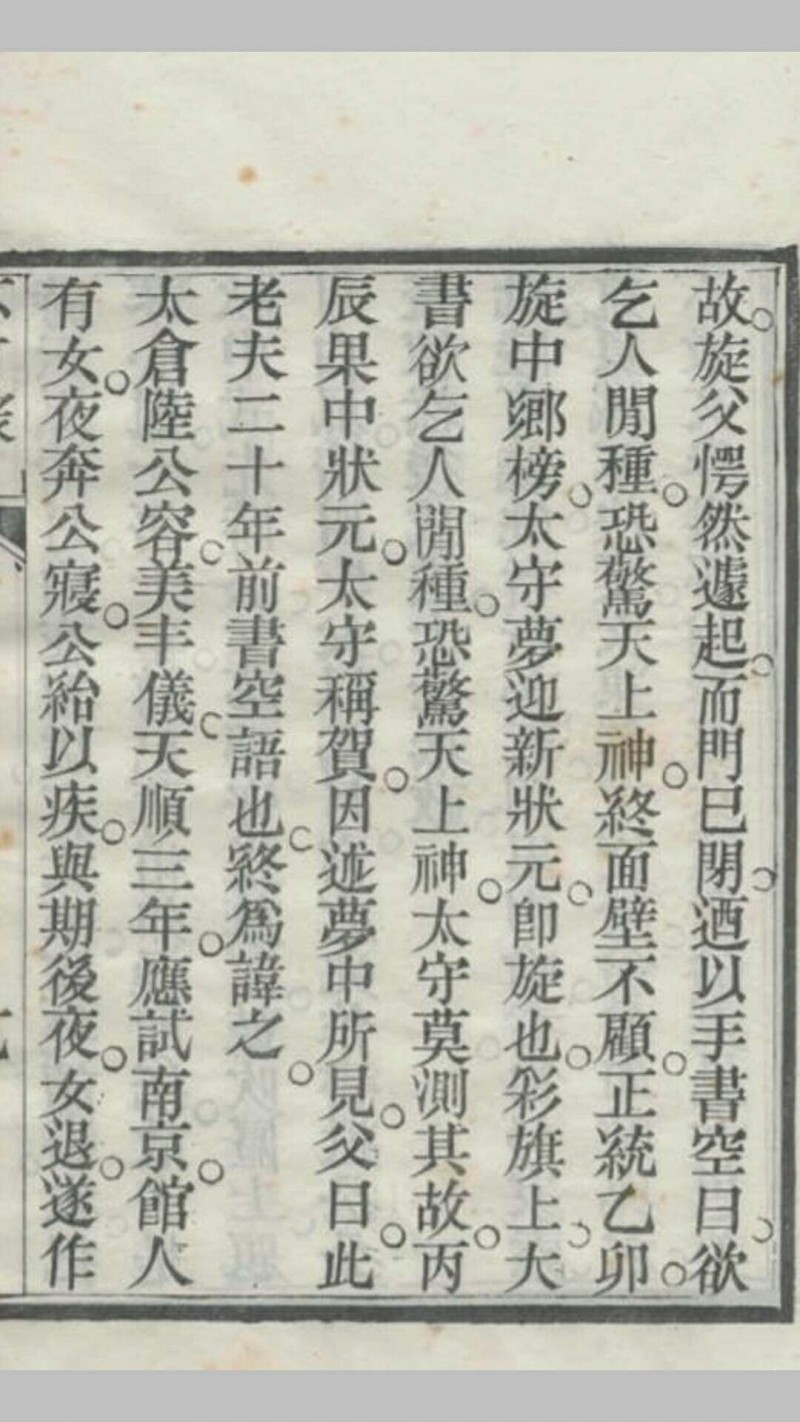 故。旋父愕然遽起。而門已閉。迺以手書空曰。欲
乞人閒種。恐驚天上神。終面壁不顧。正統乙卯。
旋中鄉榜。太守夢迎新狀元。卽旋也。彩旗上大。
書欲乞人閒種。恐驚天上神。太守莫測其故。丙
辰果中狀元。太守稱賀。因述夢中所見。父曰。此
老夫二十年前書空語也。終爲諱之。
太倉陸公容。美丰儀。天順三年。應試南京。館人
有女。夜奔公寢。公紿以疾。與期後夜。女退。遂作